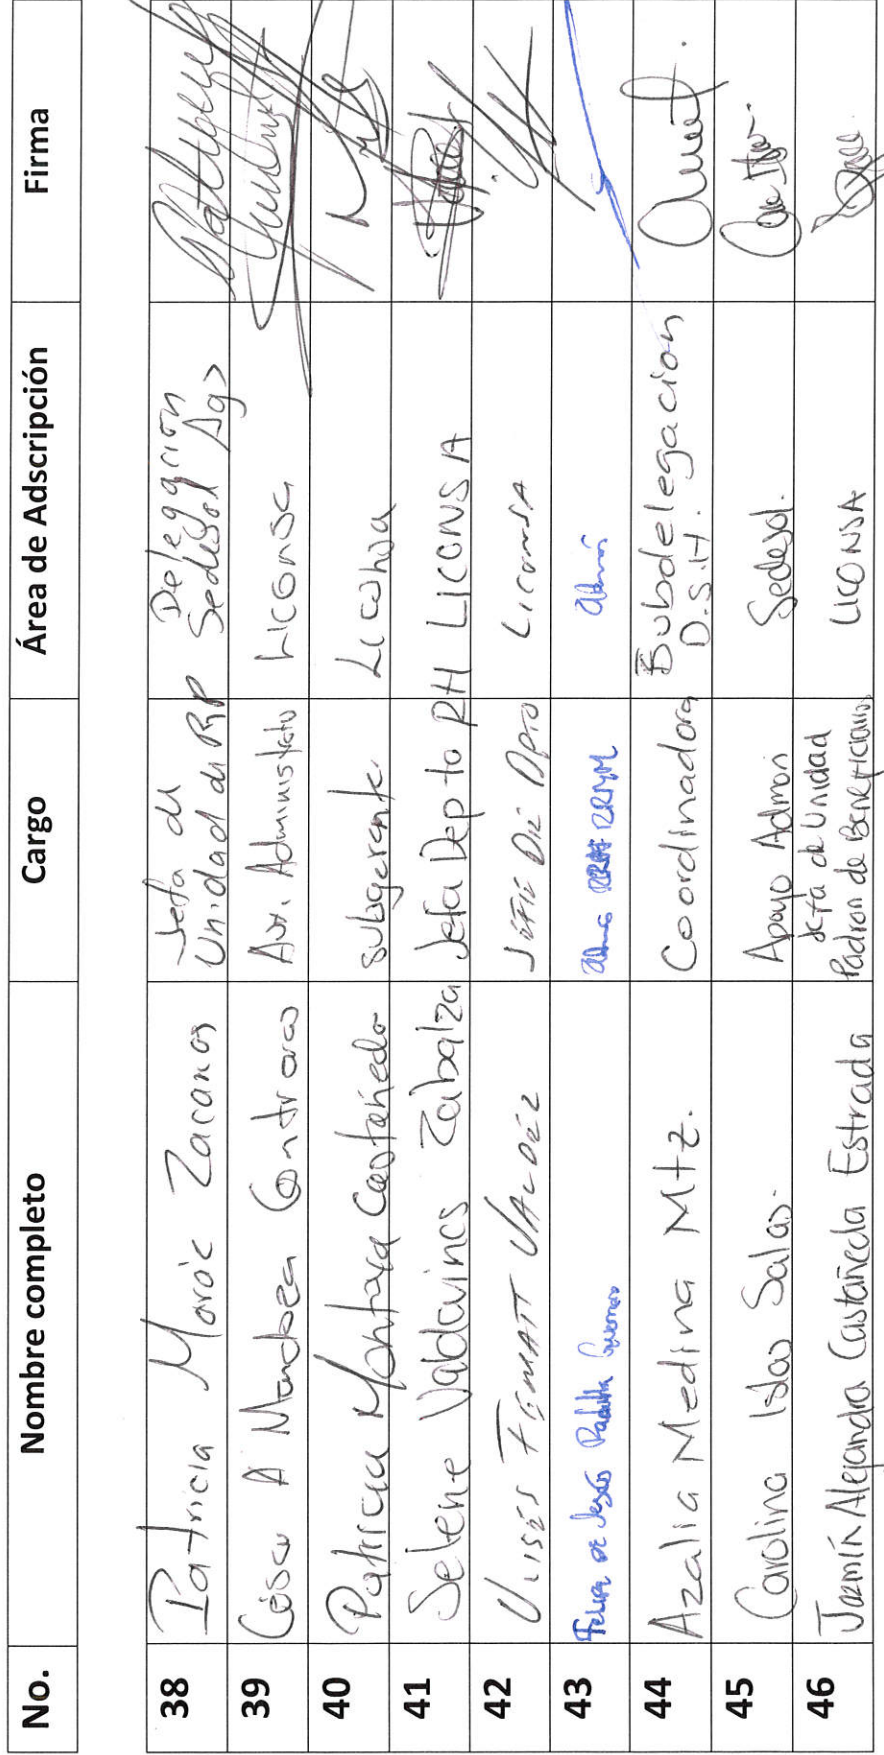 No. Nombre completo Cargo Área de Adscripción Firma
38 Patricia Zacarias Jefa de Unidad de Delegación Sedesol Ags
39 A Contreras Aux. Administrativo Liconsa
40 Patricia Montoya Castañeda subgerente Liconsa
41 Selene Valdivines Zabalza Jefa Depto RH LICONSA
42 Ulises Fematt Valdéz Liconsa
43 Felipe de Jesús Padilla Guerrero
44 Azalia Medina Mtz. Coordinadora Subdelegacion D.S.H.
45 Carolina Islas Salas. Apoyo Admon Sedesol.
46 Jazmín Alejandra Castañeda Estrada Jefa de Unidad Padron de Beneficiarios LICONSA